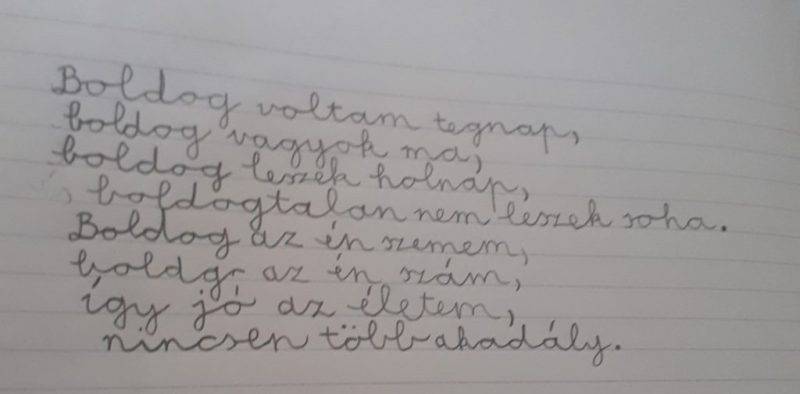 Boldog voltam tegnap,
boldog vagyok ma,
boldog leszek holnap,
boldogtalan nem leszek soha.
Boldog az én szemem,
boldg az én szám,
így jó az életem,
nincsen több akadály.